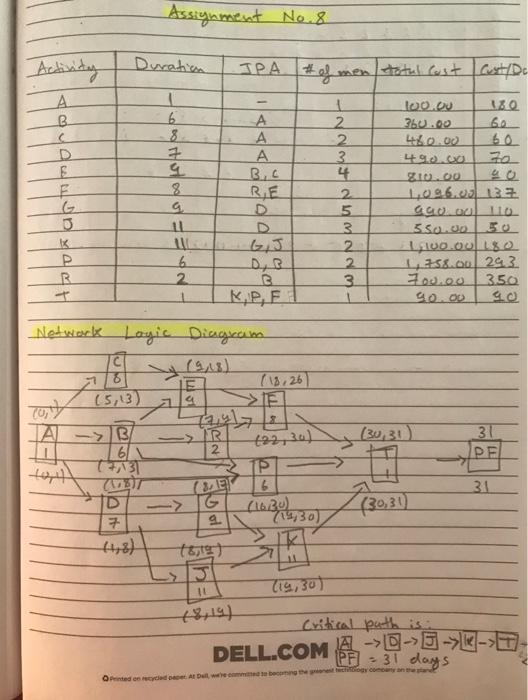 Assignment No. 8
Activity Duration IPA # of men total Cust Cust/Da
A 1 - 1 100.00 180
B 6 A 2 360.00 60
C 8 A 2 480.00 60
D 7 A 3 490.00 70
E 9 B, C 4 810.00 90
F 8 R, E 2 1,096.00 137
G 9 D 5 990.00 110
J 11 D 3 550.00 50
K 11 G, J 2 1,100.00 180
P 6 D, B 2 1,758.00 293
R 2 B 3 700.00 350
T 1 K, P, F 1 90.00 90
Network Logic Diagram
C
8
(9,18)
(18,26)
(5,13)
E
9
F
8
(0,1)
(7,9)
A
1
B
6
R
2
(22,30)
(30,31)
31
T
1
PF
(0,1)
(7,13)
P
6
31
(1,8)
D
7
G
9
(16,30)
(19,30)
(30,31)
K
11
(1,8)
(8,19)
J
11
(19,30)
(8,19)
Critical path is:
A -> D -> J -> K -> T ->
PF = 31 days
DELL.COM
Printed on recycled paper. At Dell, we're committed to becoming the greenest technology company on the planet.